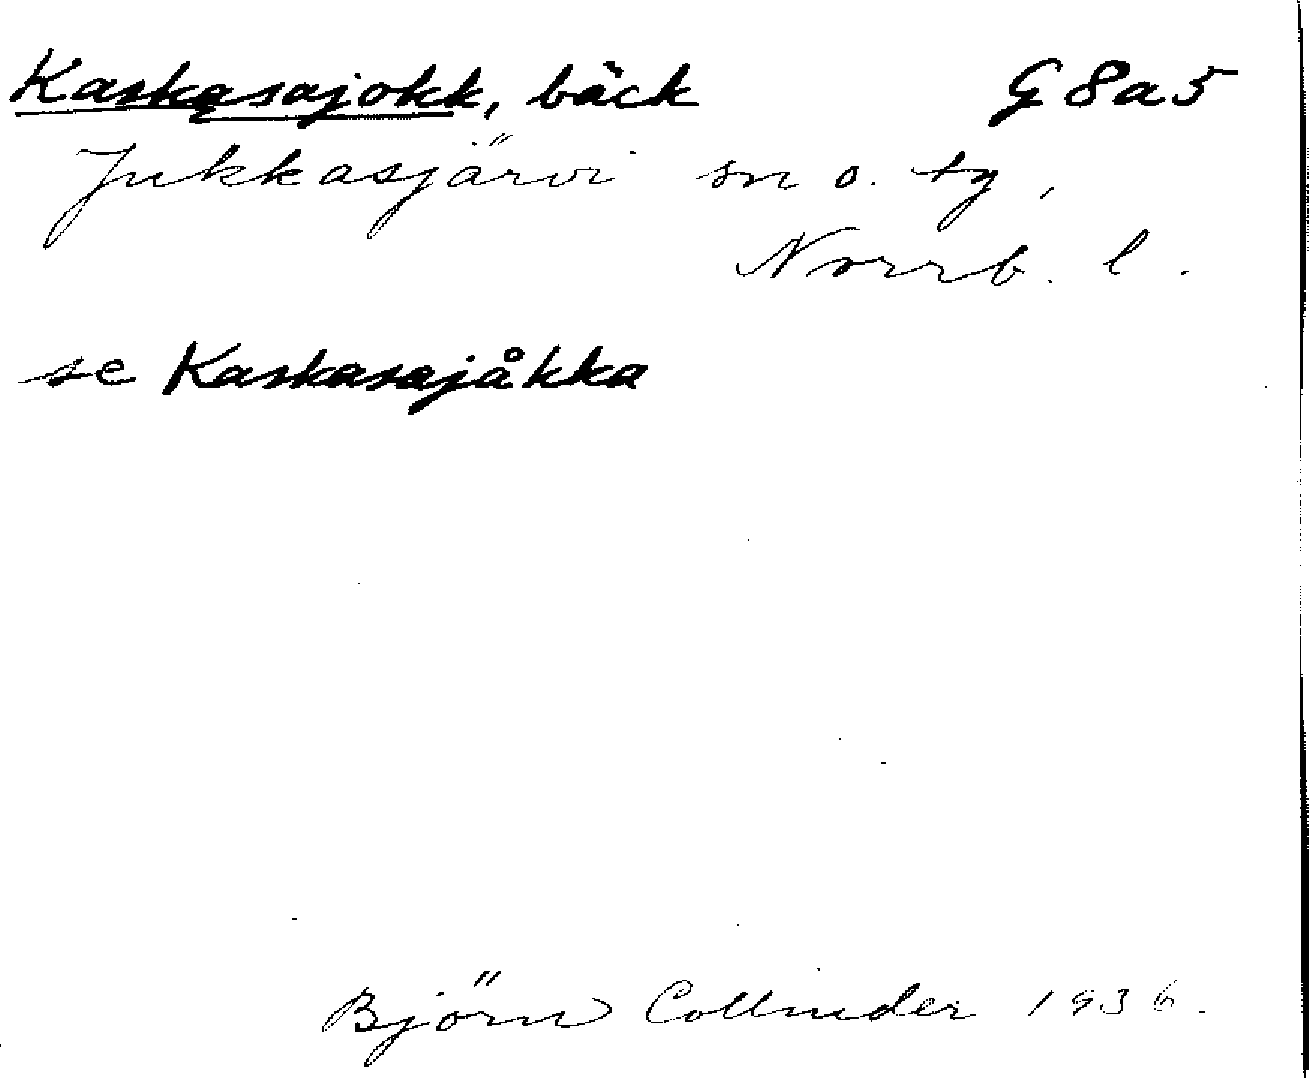 Kaskasajokk, bäck G8a5
Jukkasjärvi sn o. tg,
Norrb. l.
se Kaskasajåkka
Björn Collinder 1936.